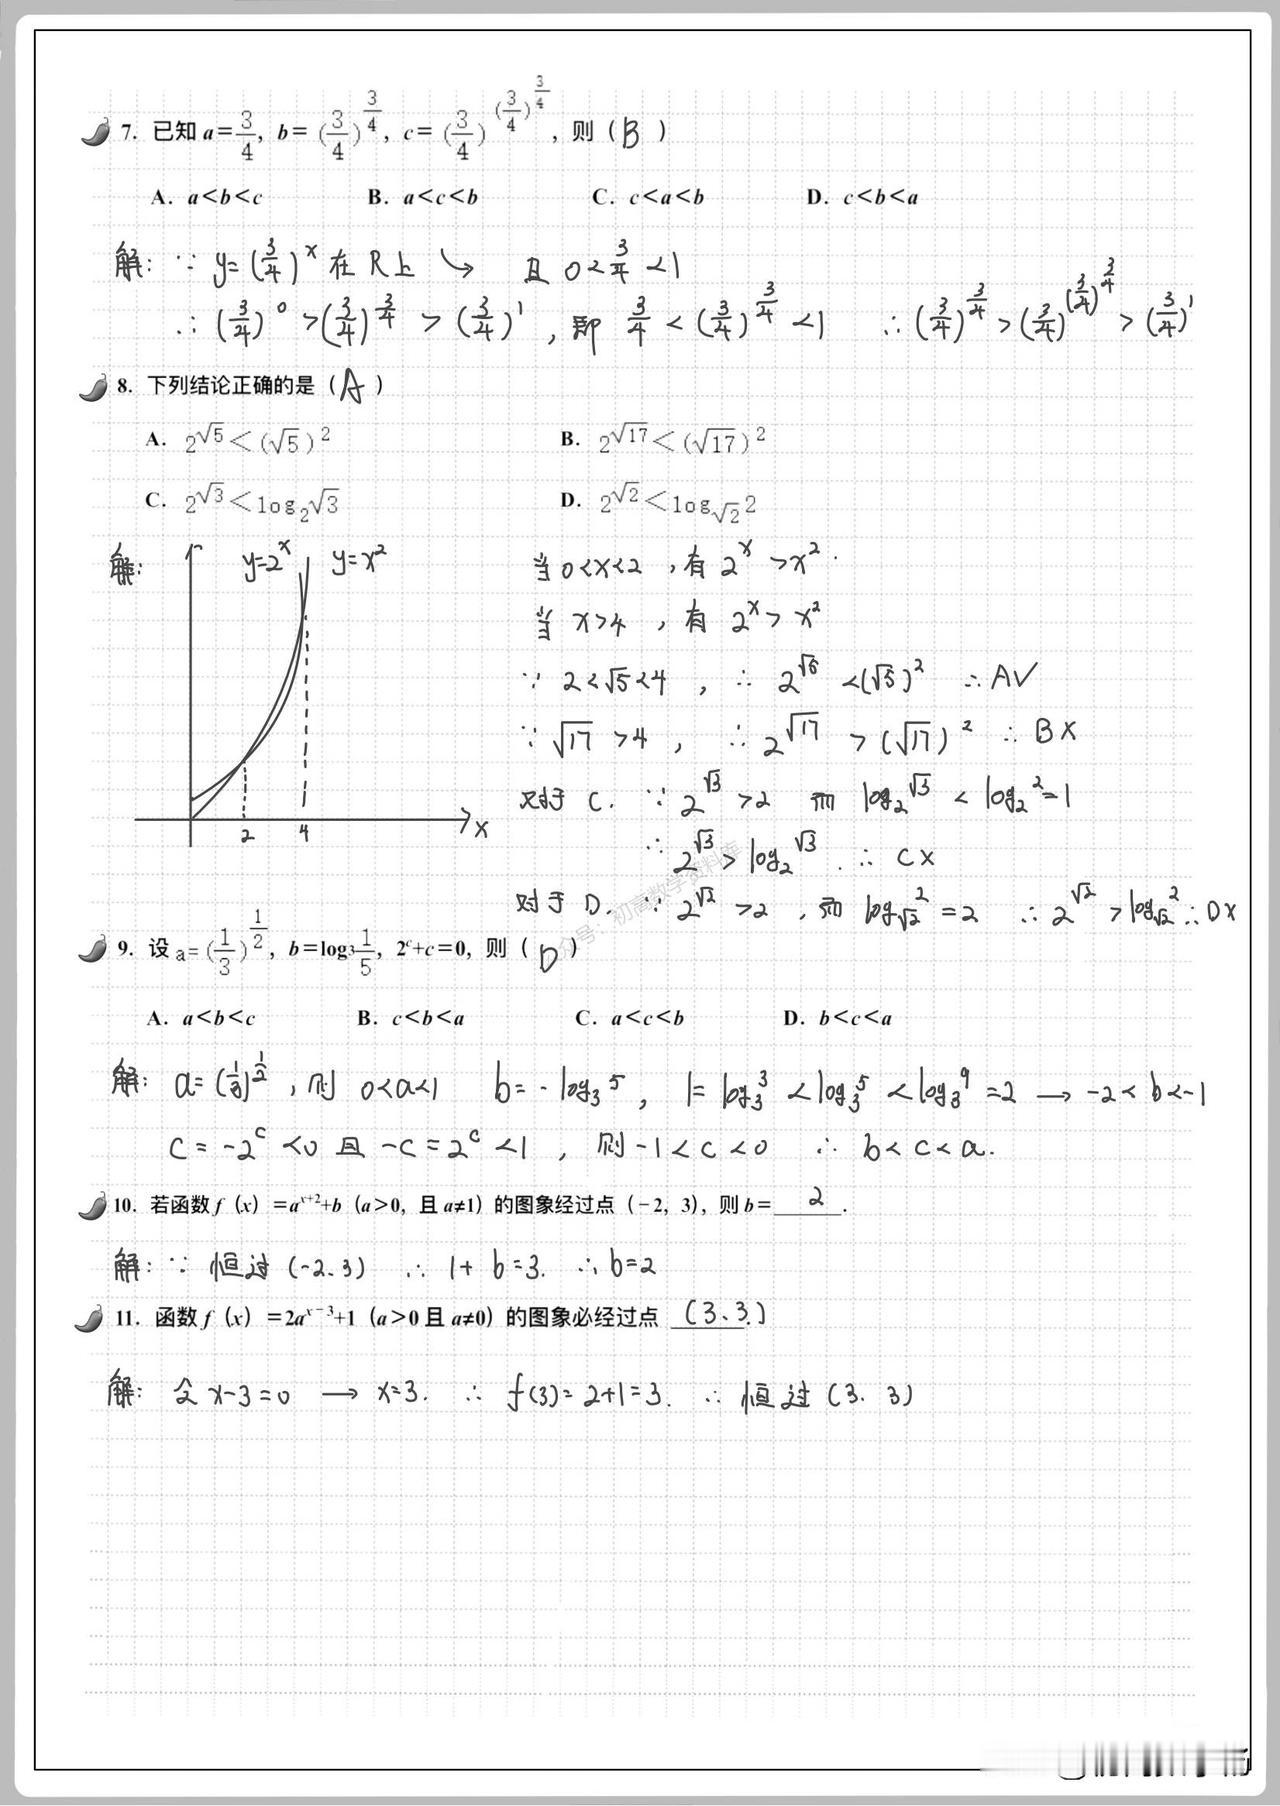 7. 已知 a=3/4, b=(3/4)^(3/4), c=(3/4)^((3/4)^(3/4)), 则（B）
A. a<b<c B. a<c<b C. c<a<b D. c<b<a
解: ∵ y=(3/4)^x 在 R上 ↘ 且 0<3/4<1
∴ (3/4)^0 >(3/4)^(3/4) > (3/4)^1, 即 3/4 < (3/4)^(3/4) <1 ∴ (3/4)^(3/4) > (3/4)^((3/4)^(3/4)) > (3/4)^1
8. 下列结论正确的是（A）
A. 2^√5<(√5)^2 B. 2^√17<(√17)^2
C. 2^√3<log_2 √3 D. 2^√2<log_√2 2
解: y=2^x y=x^2
2 4 x
当 0<x<2, 有 2^x >x^2.
当 x>4, 有 2^x > x^2
∵ 2<√5<4, ∴ 2^√5 <(√5)^2 ∴ A√
∵ √17 >4, ∴ 2^√17 > (√17)^2 ∴ B×
对于 C. ∵ 2^√3 >2 而 log_2 √3 < log_2 2=1
∴ 2^√3 > log_2 √3. ∴ C×
对于 D. ∵ 2^√2 >2, 而 log_√2 2 =2 ∴ 2^√2 >log_√2 2 ∴ D×
公众号：初高数学资料库
9. 设 a=(1/3)^(1/2), b=log_3 1/5, 2^c+c=0, 则（D）
A. a<b<c B. c<b<a C. a<c<b D. b<c<a
解: a=(1/3)^(1/2), 则 0<a<1 b=-log_3 5, 1=log_3 3 <log_3 5 <log_3 9 =2 → -2< b<-1
c=-2^c <0 且 -c=2^c <1, 则 -1<c<0 ∴ b<c<a.
10. 若函数 f（x）=a^(x+2)+b（a>0, 且 a≠1）的图象经过点（-2, 3）, 则 b= 2 .
解: ∵ 恒过 (-2.3) ∴ 1+ b=3. ∴ b=2
11. 函数 f（x）=2a^(x-3)+1（a>0 且 a≠0）的图象必经过点 (3、3) .
解: 令 x-3=0 → x=3. ∴ f(3)=2+1=3. ∴ 恒过 (3. 3)